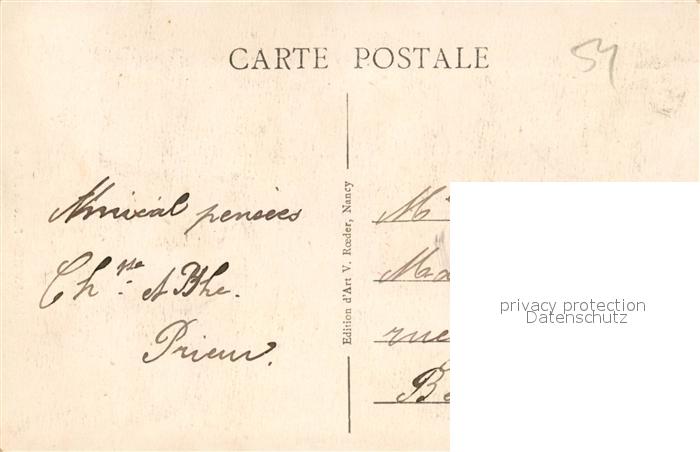 CARTE POSTALE
54
Amical pensées
Ch et
Prieur.
Edition d'Art V. Rœder, Nancy
M
rue
privacy protection
Datenschutz